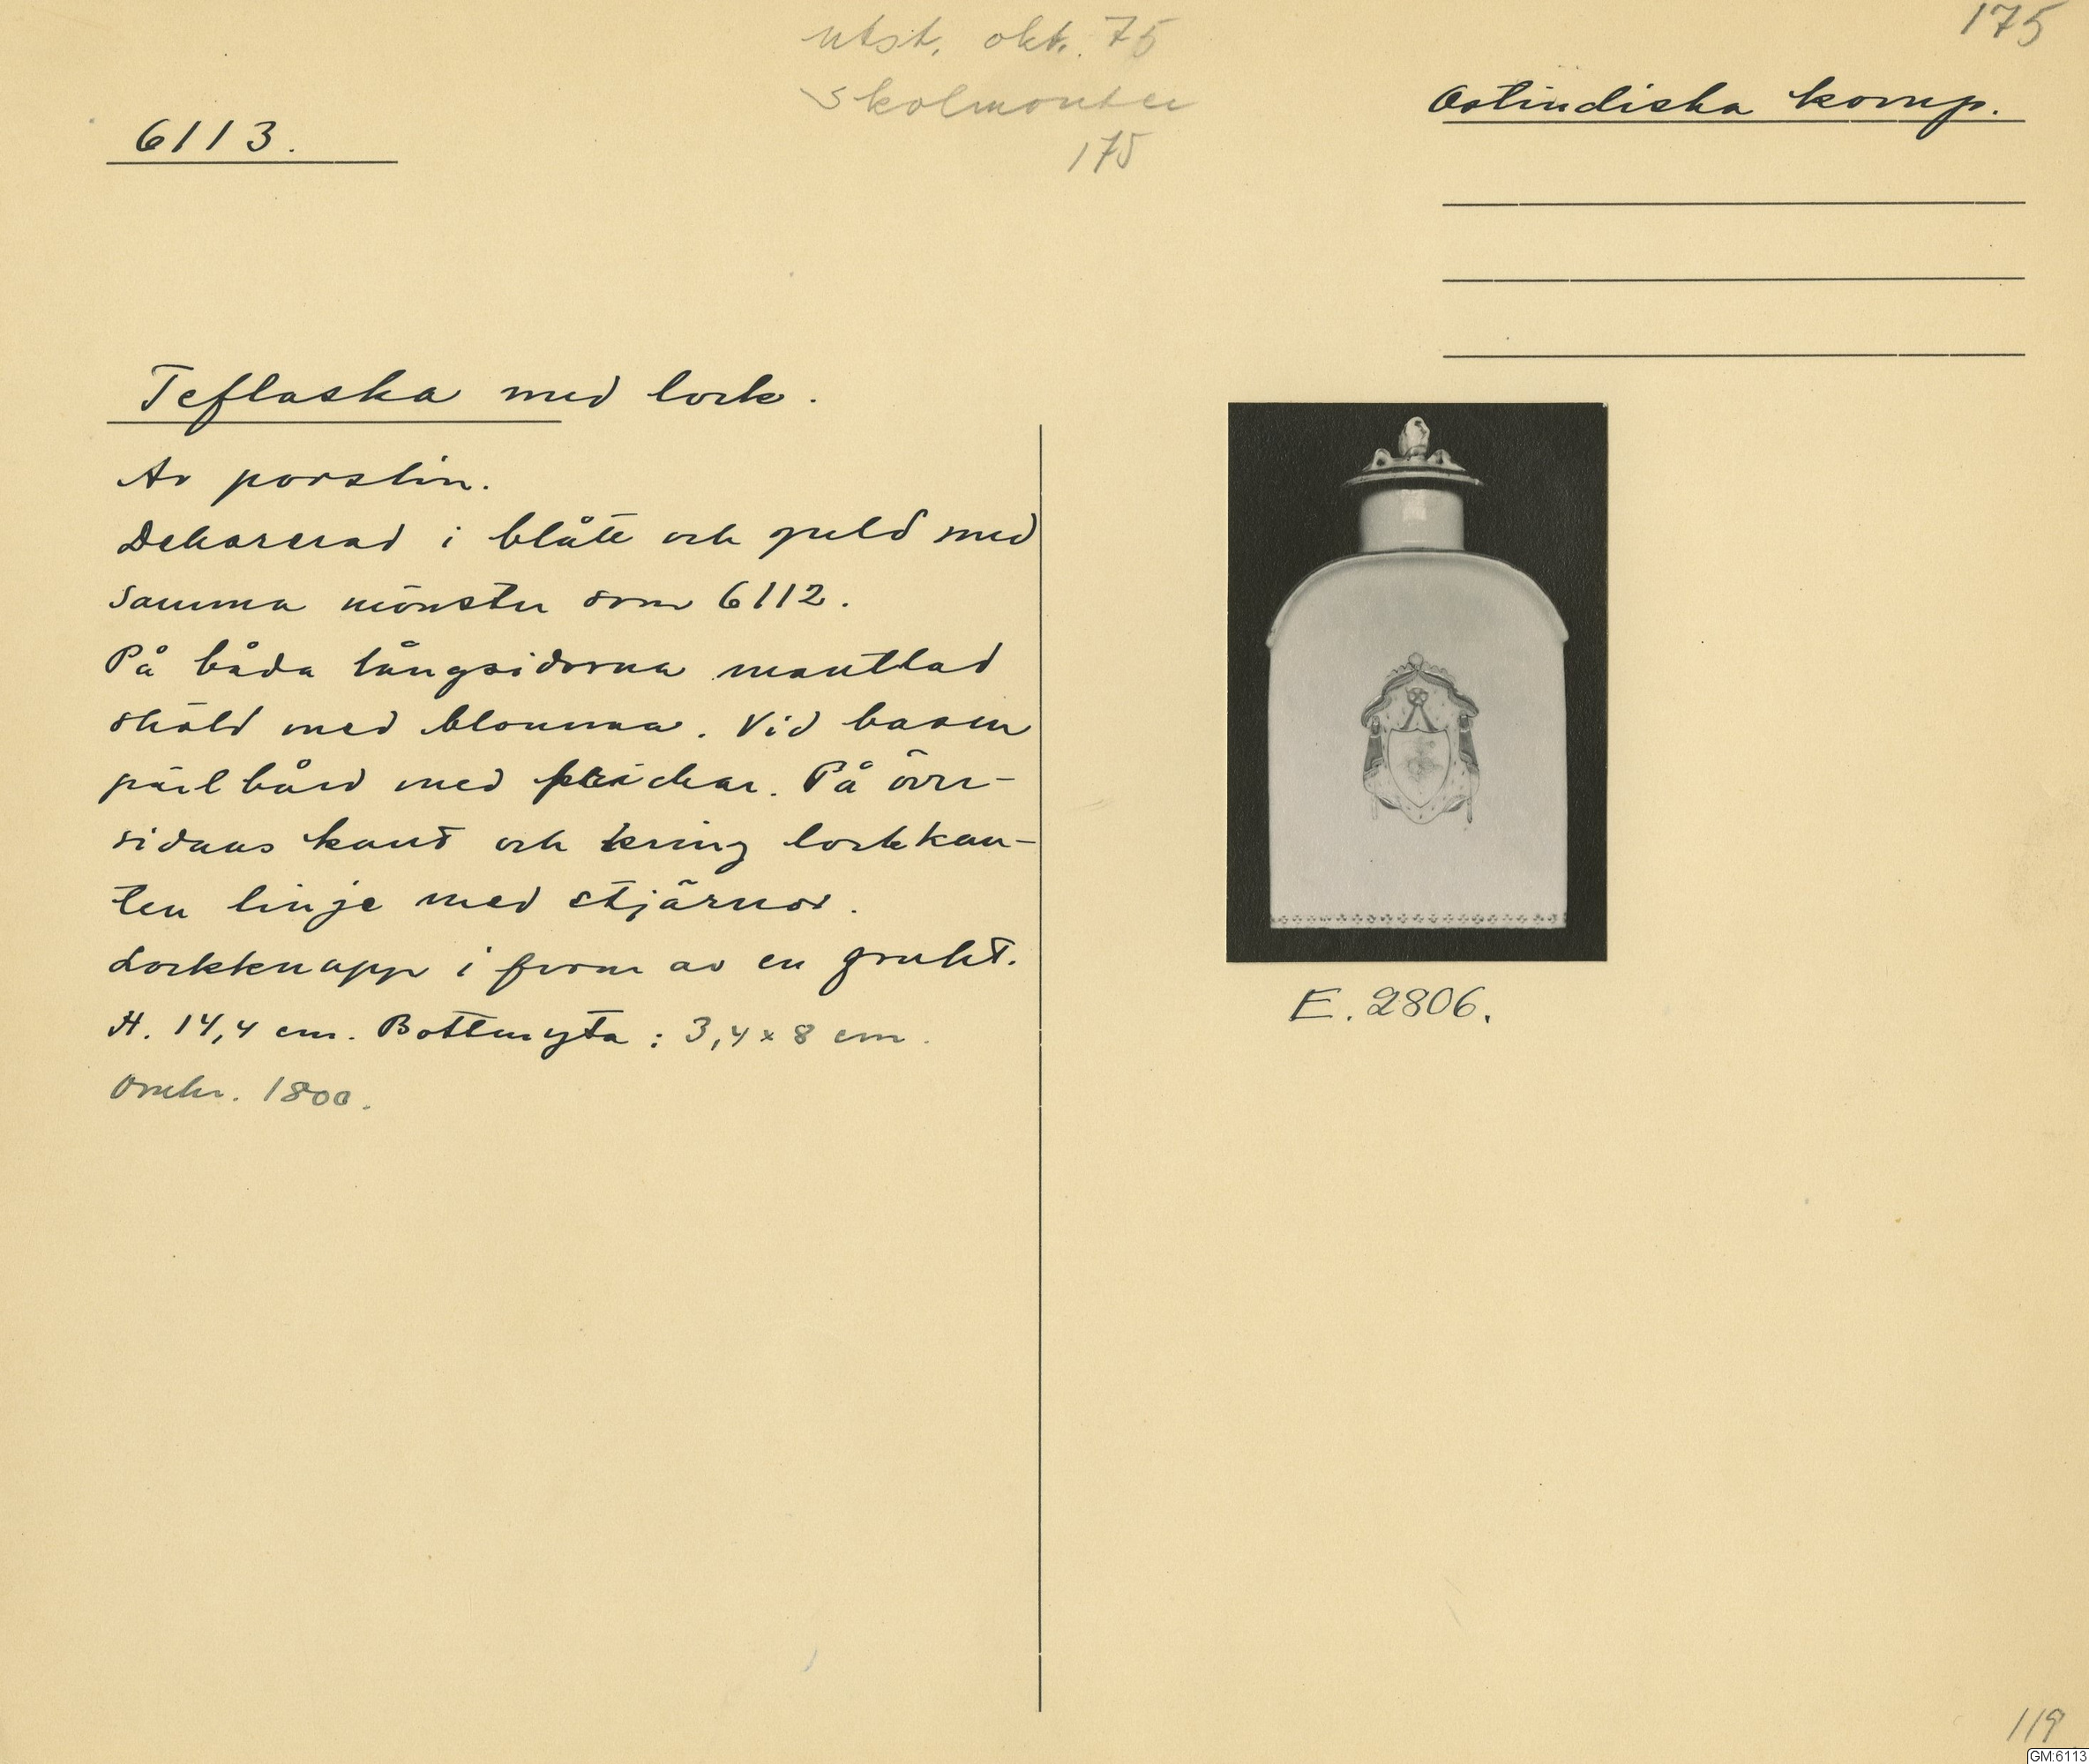 175
utst. okt. 75
Skolmonter
175
Ostindiska komp.
6113.
Teflaska med lock.
Av porslin.
Dekorerad i blått och guld med
samma mönster som 6112.
På båda långsidorna mantlad
sköld med blomma. Vid basen
pärlbård med prickar. På över-
sidans kant och kring lockkan-
ten linje med stjärnor.
Lockknapp i form av en frukt.
H. 14,4 cm. Bottenyta: 3,4 x 8 cm.
Omkr. 1800.
E. 2806.
119
GM:6113